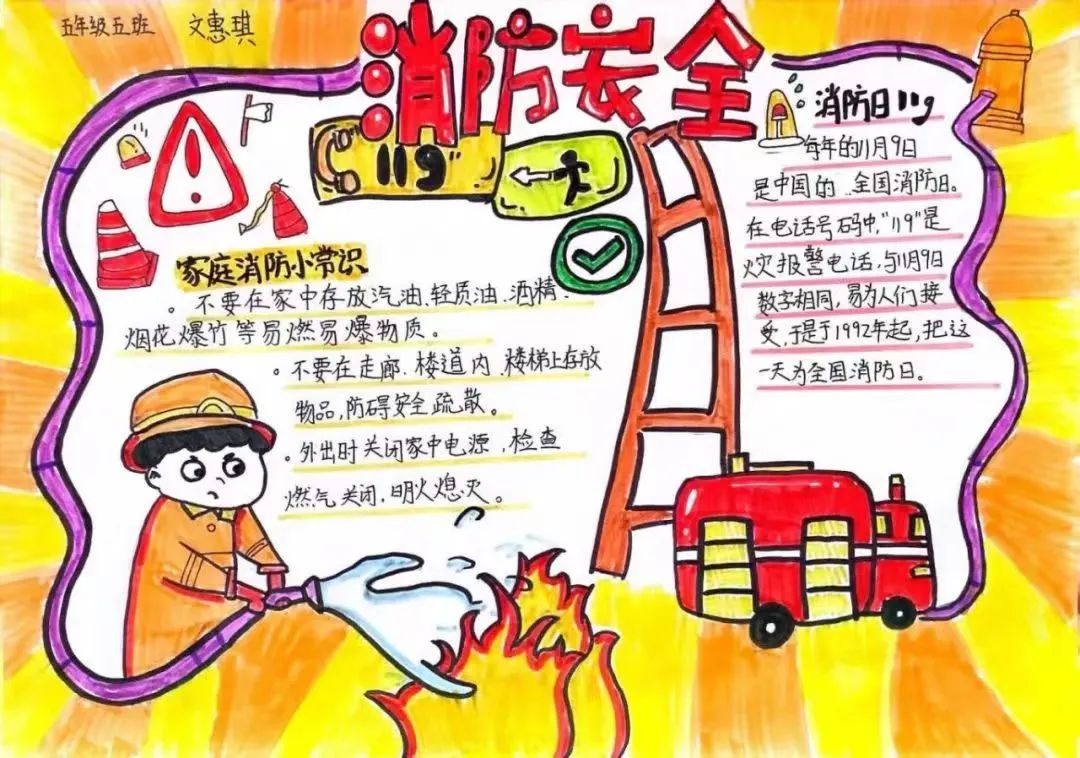 五年级五班 文惠琪
消防安全
119
消防日119
每年的11月9日
是中国的 全国消防日。
在电话号码中,"119"是
火灾报警电话,与11月9日
数字相同,易为人们接
受,于是于1992年起,把这
一天为全国消防日。
家庭消防小常识
。不要在家中存放汽油、轻质油、酒精、
烟花爆竹等易燃易爆物质。
。不要在走廊、楼道内、楼梯上存放
物品,防碍安全疏散。
。外出时关闭家中电源,检查
燃气关闭,明火熄灭。